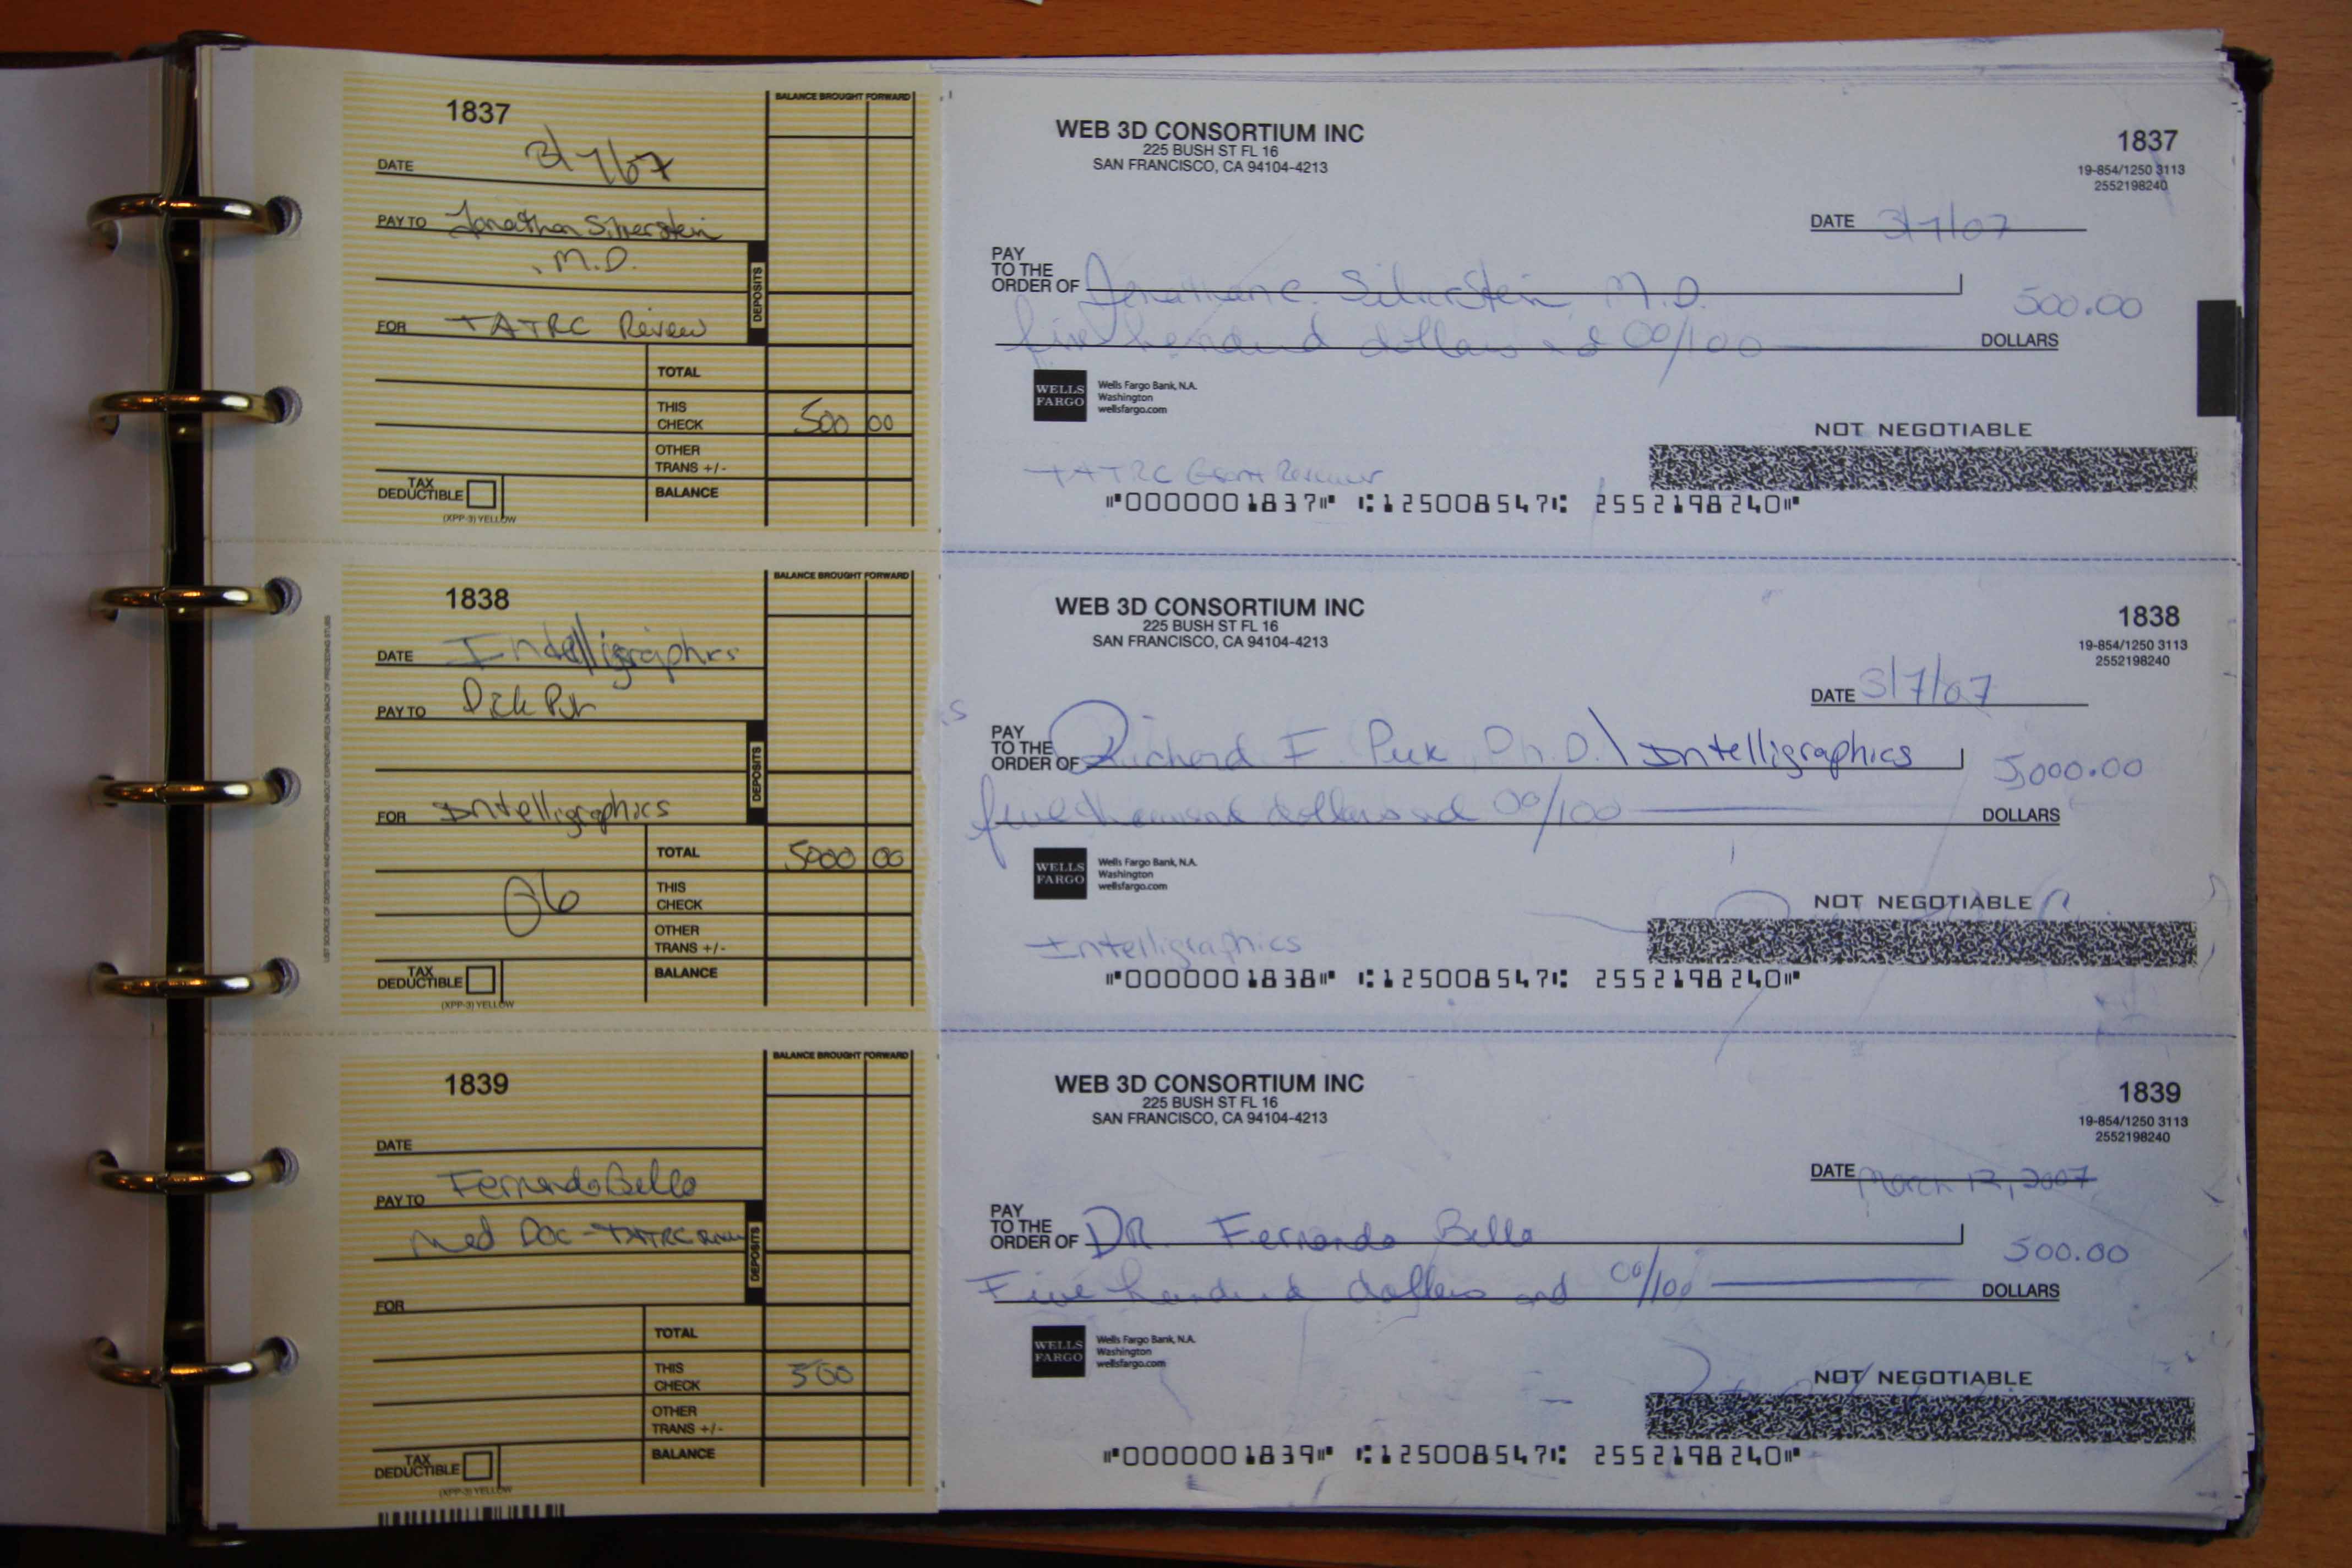 1837
BALANCE BROUGHT FORWARD
DATE 3/7/07
PAY TO Jonathan Silverstein
, M.D.
DEPOSITS
FOR TATRC Review
TOTAL
THIS CHECK 500 00
OTHER TRANS +/-
TAX DEDUCTIBLE
BALANCE
(XPP-3) YELLOW
WEB 3D CONSORTIUM INC
225 BUSH ST FL 16
SAN FRANCISCO, CA 94104-4213
1837
19-854/1250 3113
2552198240
DATE 3/7/07
PAY TO THE ORDER OF Jonathan C. Silverstein, M.D.
500.00
five hundred dollars and 00/100
DOLLARS
WELLS FARGO
Wells Fargo Bank, N.A.
Washington
wellsfargo.com
NOT NEGOTIABLE
TATRC Grant Reviewer
⑈0000001837⑈ ⑆125008547⑆ 2552198240⑈
LIST SOURCE OF DEPOSITS AND INFORMATION ABOUT EXPENDITURES ON BACK OF PRECEDING STUBS
1838
BALANCE BROUGHT FORWARD
DATE Intelligraphics
PAY TO Dick Puk
DEPOSITS
FOR Intelligraphics
TOTAL 5000 00
06
THIS CHECK
OTHER TRANS +/-
TAX DEDUCTIBLE
BALANCE
(XPP-3) YELLOW
WEB 3D CONSORTIUM INC
225 BUSH ST FL 16
SAN FRANCISCO, CA 94104-4213
1838
19-854/1250 3113
2552198240
DATE 3/7/07
PAY TO THE ORDER OF Richard F. Puk, Ph.D. \ Intelligraphics
5,000.00
five thousand dollars and 00/100
DOLLARS
WELLS FARGO
Wells Fargo Bank, N.A.
Washington
wellsfargo.com
NOT NEGOTIABLE
Intelligraphics
⑈0000001838⑈ ⑆125008547⑆ 2552198240⑈
1839
BALANCE BROUGHT FORWARD
DATE
PAY TO Fernando Bello
Med Doc - TATRC Review
DEPOSITS
FOR
TOTAL
THIS CHECK 500
OTHER TRANS +/-
TAX DEDUCTIBLE
BALANCE
(XPP-3) YELLOW
WEB 3D CONSORTIUM INC
225 BUSH ST FL 16
SAN FRANCISCO, CA 94104-4213
1839
19-854/1250 3113
2552198240
DATE March 12, 2007
PAY TO THE ORDER OF DR. Fernando Bello
500.00
Five hundred dollars and 00/100
DOLLARS
WELLS FARGO
Wells Fargo Bank, N.A.
Washington
wellsfargo.com
NOT NEGOTIABLE
⑈0000001839⑈ ⑆125008547⑆ 2552198240⑈